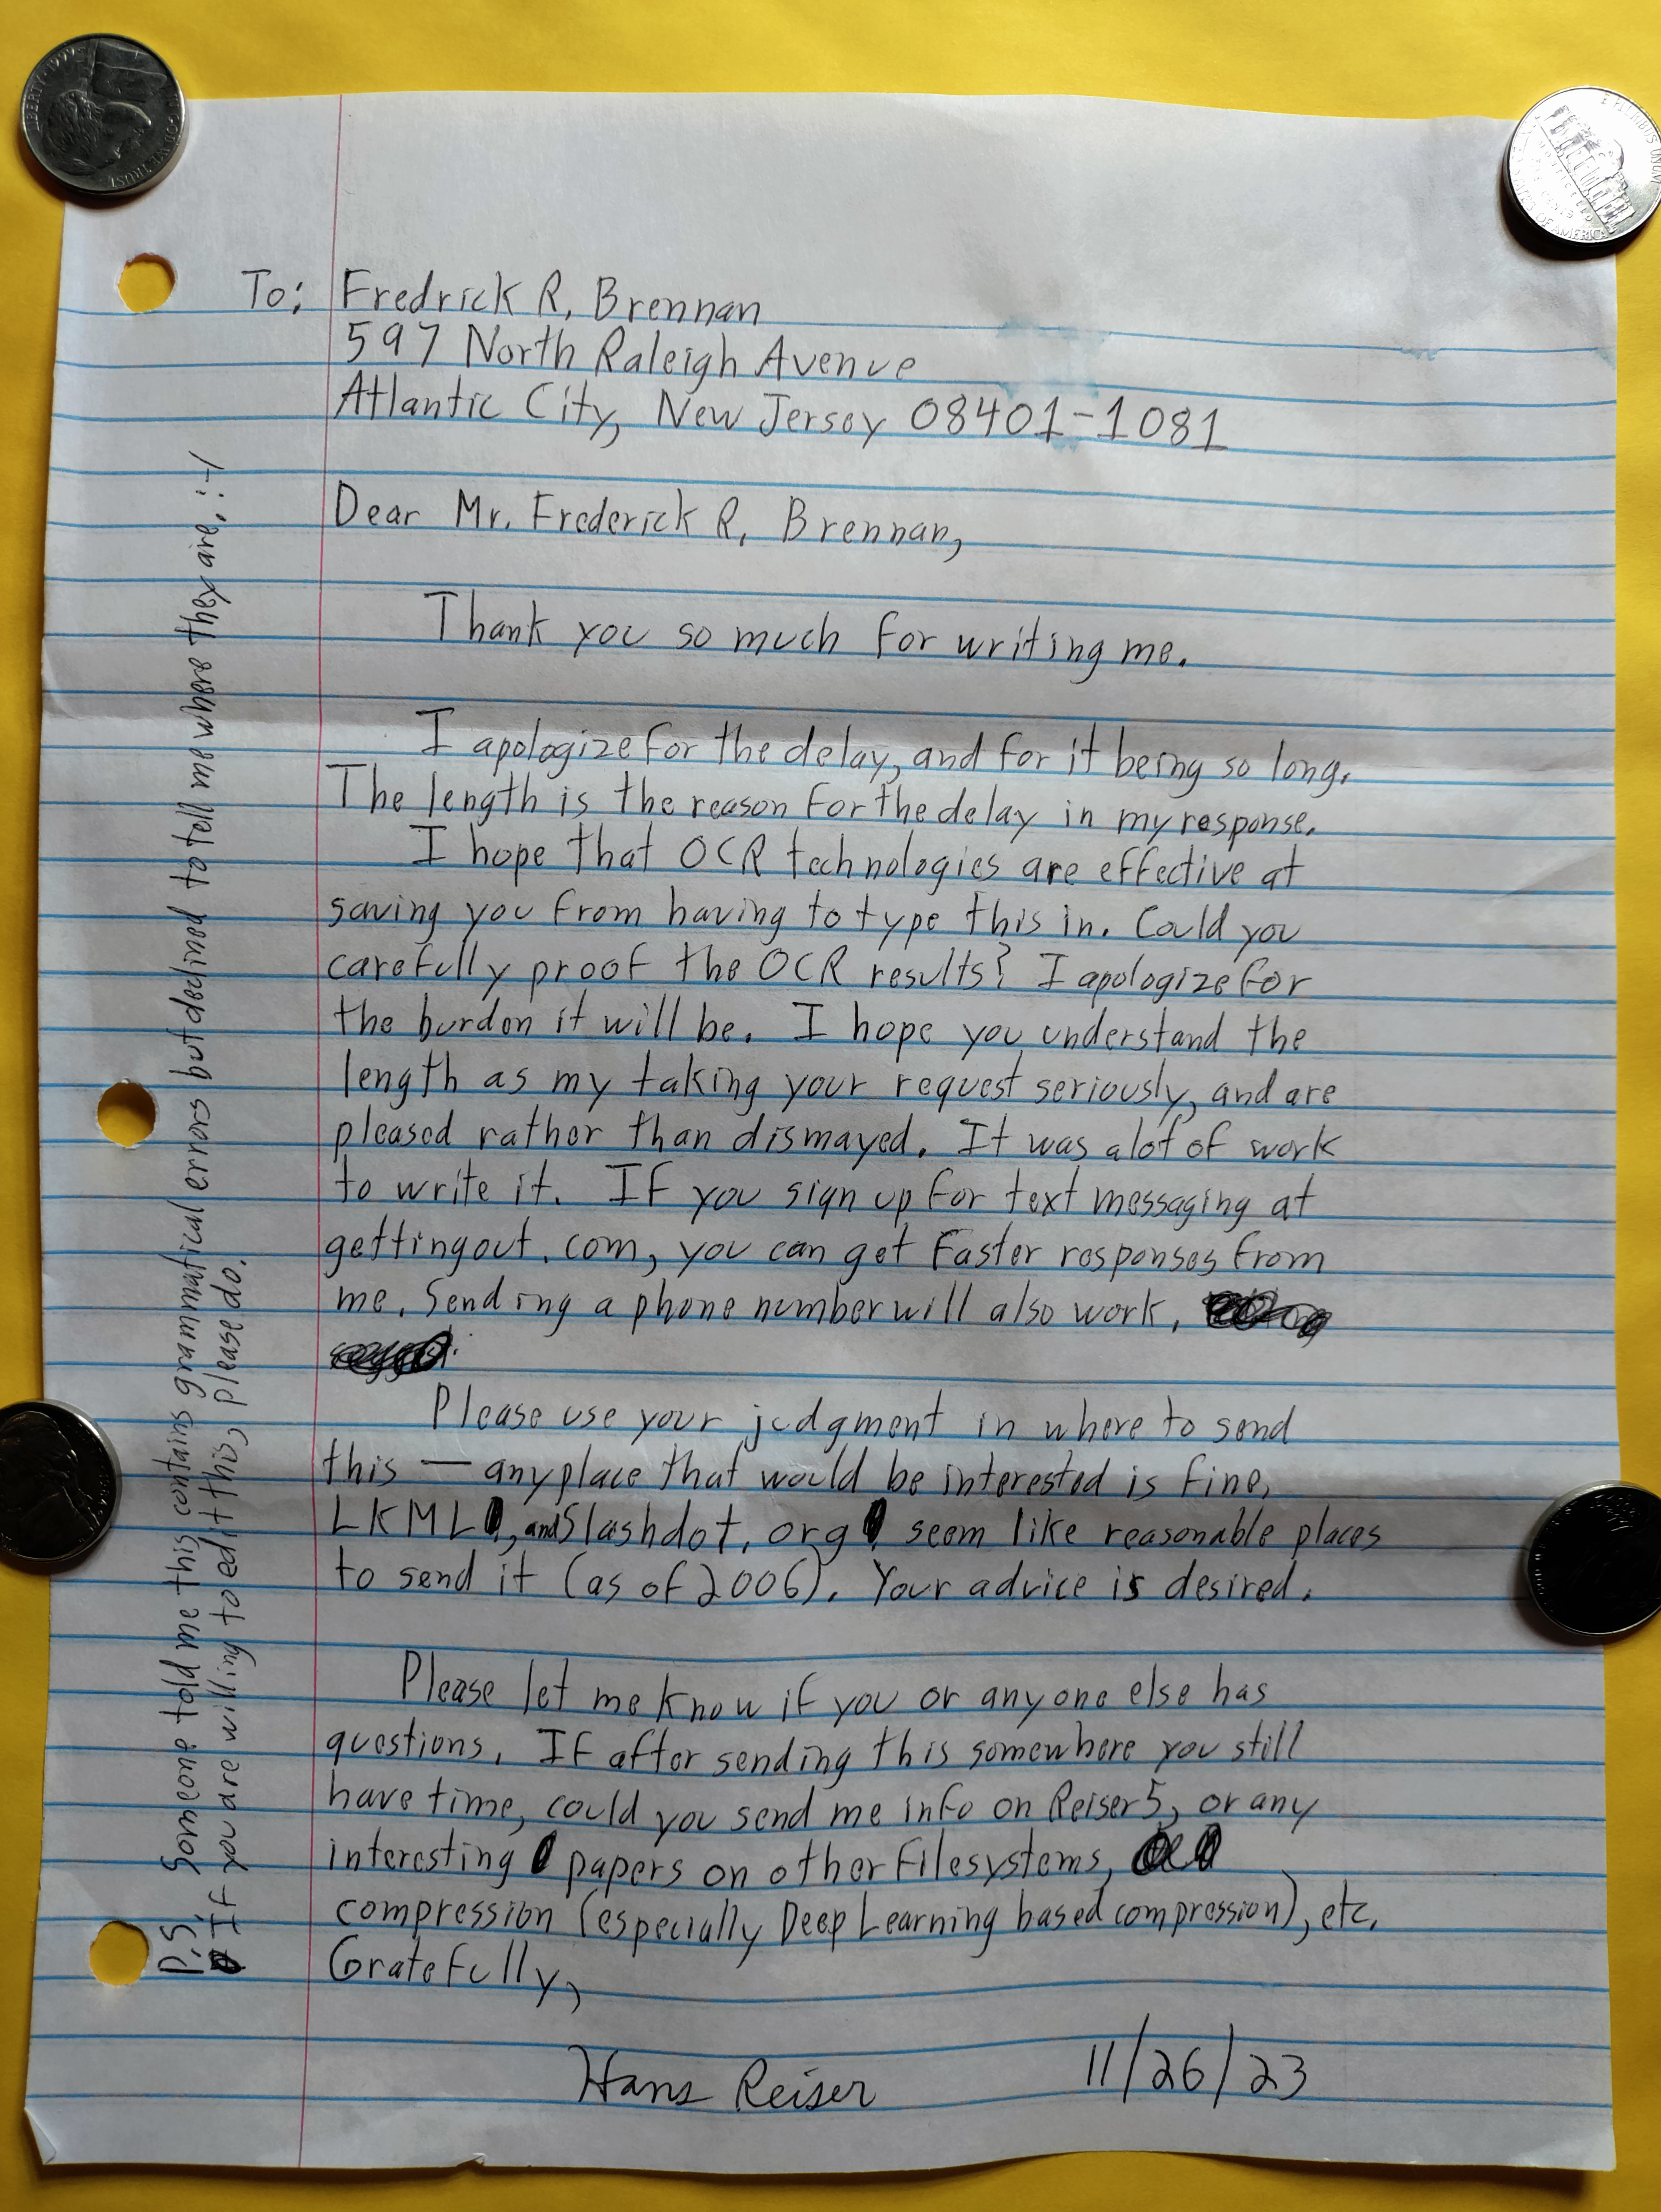 To: Fredrick R. Brennan
597 North Raleigh Avenue
Atlantic City, New Jersey 08401-1081
Dear Mr. Frederick R. Brennan,
Thank you so much for writing me.
I apologize for the delay, and for it being so long.
The length is the reason for the delay in my response.
I hope that OCR technologies are effective at
saving you from having to type this in. Could you
carefully proof the OCR results? I apologize for
the burden it will be. I hope you understand the
length as my taking your request seriously, and are
pleased rather than dismayed. It was a lot of work
to write it. If you sign up for text messaging at
gettingout.com, you can get faster responses from
me. Sending a phone number will also work.
Please use your judgment in where to send
this — anyplace that would be interested is fine.
LKML, and Slashdot.org seem like reasonable places
to send it (as of 2006). Your advice is desired.
Please let me know if you or anyone else has
questions. If after sending this somewhere you still
have time, could you send me info on Reiser5, or any
interesting papers on other filesystems,
compression (especially Deep Learning based compression), etc.
Gratefully,
Hans Reiser 11/26/23
P.S. Someone told me this contains grammatical errors but declined to tell me where they are. :-/
If you are willing to edit this, please do.
LIBERTY 1999
IN GOD WE TRUST
E PLURIBUS UNUM
MONTICELLO
FIVE CENTS
UNITED STATES OF AMERICA